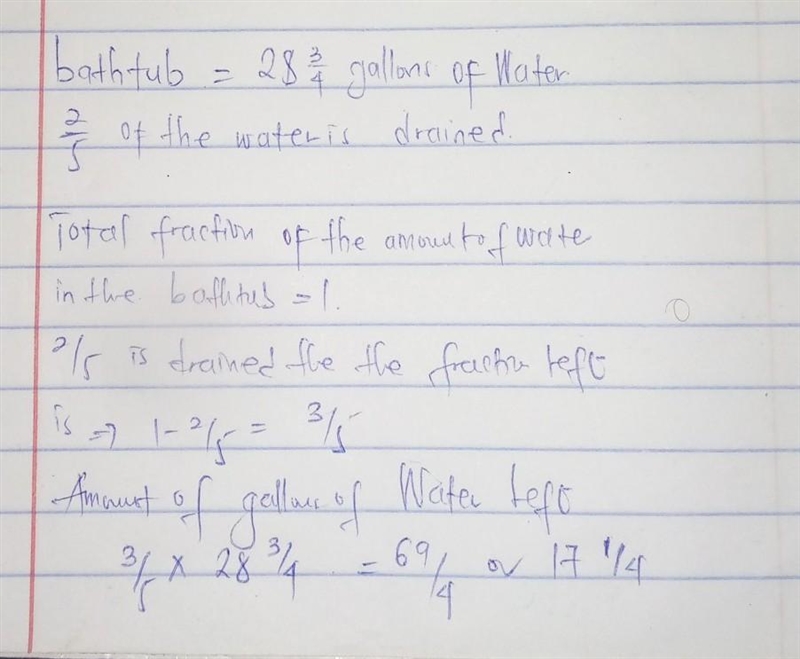 bathtub = 28 3/4 gallons of Water
2/5 of the water is drained.
Total fraction of the amount of wate
in the bathtub = 1.
2/5 is drained the the fraction left
is => 1 - 2/5 = 3/5
Amount of gallons of Water Left
3/5 x 28 3/4 = 69/4 or 17 1/4